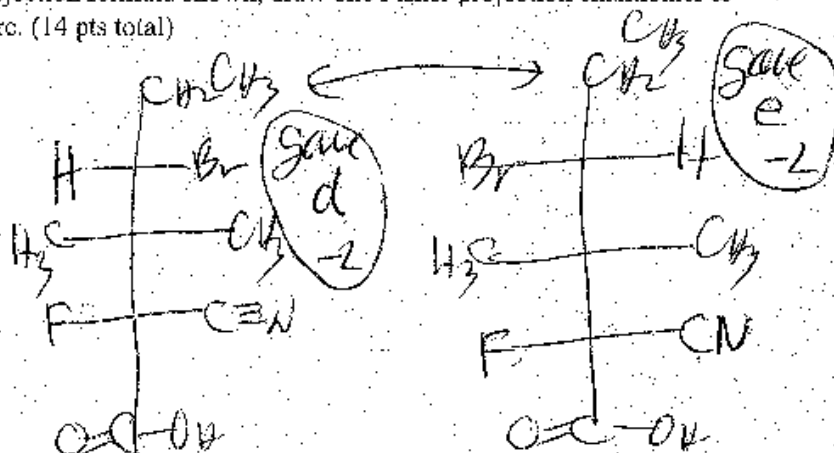 rc. (14 pts total)
CH2CH3
H Br
H3C CH3
F C≡N
O=C-OH
gave
d
-2
CH3
CH2
Br H
H3C CH3
F CN
O=C-OH
gave
e
-2